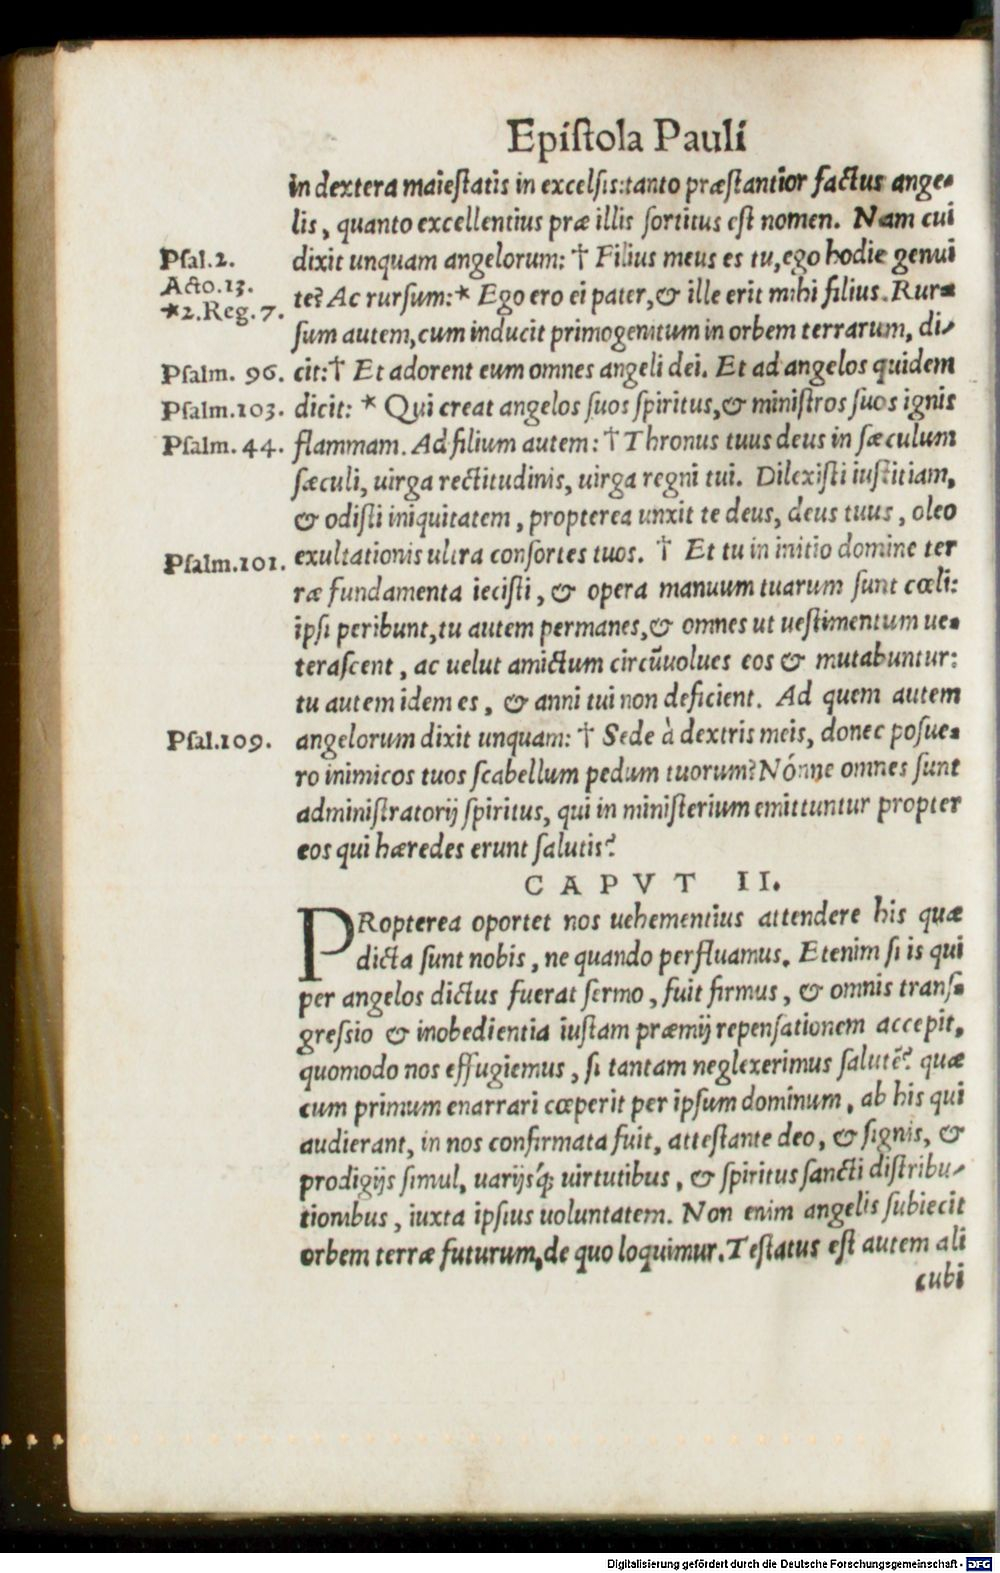 Epistola Pauli
in dextera maiestatis in excelsis: tanto præstantior factus ange-
lis, quanto excellentius præ illis sortitus est nomen. Nam cui
Psal.2. dixit unquam angelorum: † Filius meus es tu, ego hodie genui
Acto.13.
*2.Reg.7. te? Ac rursum:* Ego ero ei pater, & ille erit mihi filius. Rur-
sum autem, cum inducit primogenitum in orbem terrarum, di-
Psalm. 96. cit:† Et adorent eum omnes angeli dei. Et ad angelos quidem
Psalm.103. dicit: * Qui creat angelos suos spiritus, & ministros suos ignis
Psalm. 44. flammam. Ad filium autem: † Thronus tuus deus in sæculum
sæculi, uirga rectitudinis, uirga regni tui. Dilexisti iustitiam,
& odisti iniquitatem, propterea unxit te deus, deus tuus, oleo
Psalm.101. exultationis ultra consortes tuos. † Et tu in initio domine ter
ræ fundamenta iecisti, & opera manuum tuarum sunt cœli:
ipsi peribunt, tu autem permanes, & omnes ut uestimentum ue-
terascent, ac uelut amictum circũuolues eos & mutabuntur:
tu autem idem es, & anni tui non deficient. Ad quem autem
Psal.109. angelorum dixit unquam: † Sede à dextris meis, donec posue-
ro inimicos tuos scabellum pedum tuorum? Nónne omnes sunt
administratorij spiritus, qui in ministerium emittuntur propter
eos qui hæredes erunt salutis?
CAPVT II.
PRopterea oportet nos uehementius attendere his quæ
dicta sunt nobis, ne quando perfluamus. Etenim si is qui
per angelos dictus fuerat sermo, fuit firmus, & omnis trans-
gressio & inobedientia iustam præmij repensationem accepit,
quomodo nos effugiemus, si tantam neglexerimus salutẽ? quæ
cum primum enarrari cœperit per ipsum dominum, ab his qui
audierant, in nos confirmata fuit, attestante deo, & signis, &
prodigijs simul, uarijsq́; uirtutibus, & spiritus sancti distribu-
tionibus, iuxta ipsius uoluntatem. Non enim angelis subiecit
orbem terræ futurum, de quo loquimur. Testatus est autem ali
cubi
Digitalisierung gefördert durch die Deutsche Forschungsgemeinschaft - DFG